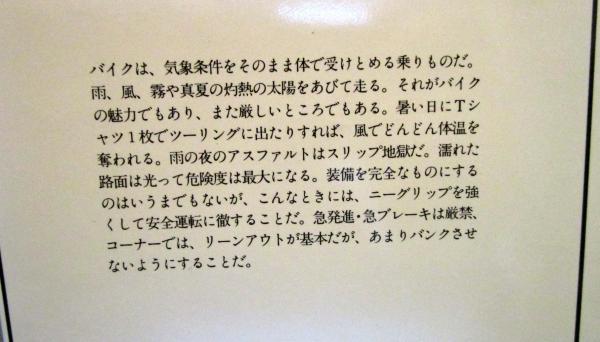 バイクは、気象条件をそのまま体で受けとめる乗りものだ。
雨、風、霧や真夏の灼熱の太陽をあびて走る。それがバイク
の魅力でもあり、また厳しいところでもある。暑い日にTシ
ャツ1枚でツーリングに出たりすれば、風でどんどん体温を
奪われる。雨の夜のアスファルトはスリップ地獄だ。濡れた
路面は光って危険度は最大になる。装備を完全なものにする
のはいうまでもないが、こんなときには、ニーグリップを強
くして安全運転に徹することだ。急発進・急ブレーキは厳禁、
コーナーでは、リーンアウトが基本だが、あまりバンクさせ
ないようにすることだ。